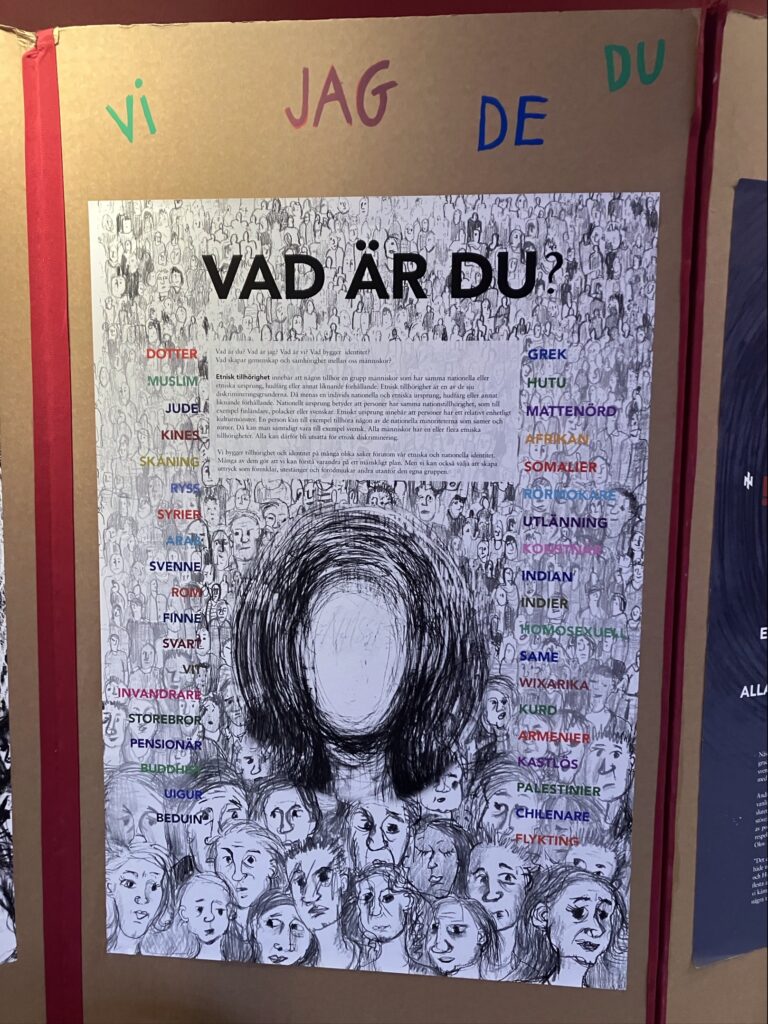 Vi JAG DE DU
VAD ÄR DU?
Vad är du? Vad är jag? Vad är vi? Vad bygger identitet?
Vad skapar gemenskap och samhörighet mellan oss människor?
Etnisk tillhörighet innebär att någon tillhör en grupp människor som har samma nationella eller
etniska ursprung, hudfärg eller annat liknande förhållande. Etnisk tillhörighet är en av de sju
diskrimineringsgrunderna. Då menas en individs nationella och etniska ursprung, hudfärg eller annat
liknande förhållande. Nationellt ursprung betyder att personer har samma nationstillhörighet, som till
exempel finländare, polacker eller svenskar. Etniskt ursprung innebär att personer har ett relativt enhetligt
kulturmönster. En person kan till exempel tillhöra någon av de nationella minoriteterna som samer och
romer. Då kan man samtidigt vara till exempel svensk. Alla människor har en eller flera etniska
tillhörigheter. Alla kan därför bli utsatta för etnisk diskriminering.
Vi bygger tillhörighet och identitet på många olika saker förutom vår etniska och nationella identitet.
Många av dem gör att vi kan förstå varandra på ett mänskligt plan. Men vi kan också välja att skapa
uttryck som förnekar, utestänger och förödmjukar andra utanför den egna gruppen.
DOTTER
MUSLIM
JUDE
KINES
SKÅNING
RYSS
SYRIER
ARAB
SVENNE
ROM
FINNE
SVART
VIT
INVANDRARE
STOREBROR
PENSIONÄR
BUDDHIST
UIGUR
BEDUIN
GREK
HUTU
MATTENÖRD
AFRIKAN
SOMALIER
RÖRMOKARE
UTLÄNNING
KONSTNÄR
INDIAN
INDIER
HOMOSEXUELL
SAME
WIXARIKA
KURD
ARMENIER
KASTLÖS
PALESTINIER
CHILENARE
FLYKTING
ALLA